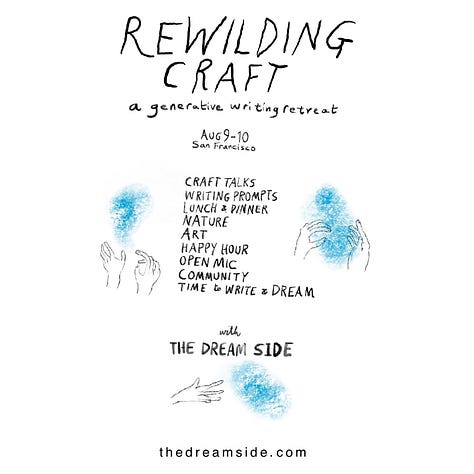 REWILDING
CRAFT
a generative writing retreat
AUG 9-10
San Francisco
CRAFT TALKS
WRITING PROMPTS
LUNCH & DINNER
NATURE
ART
HAPPY HOUR
OPEN MIC
COMMUNITY
TIME to WRITE & DREAM
with
THE DREAM SIDE
thedreamside.com